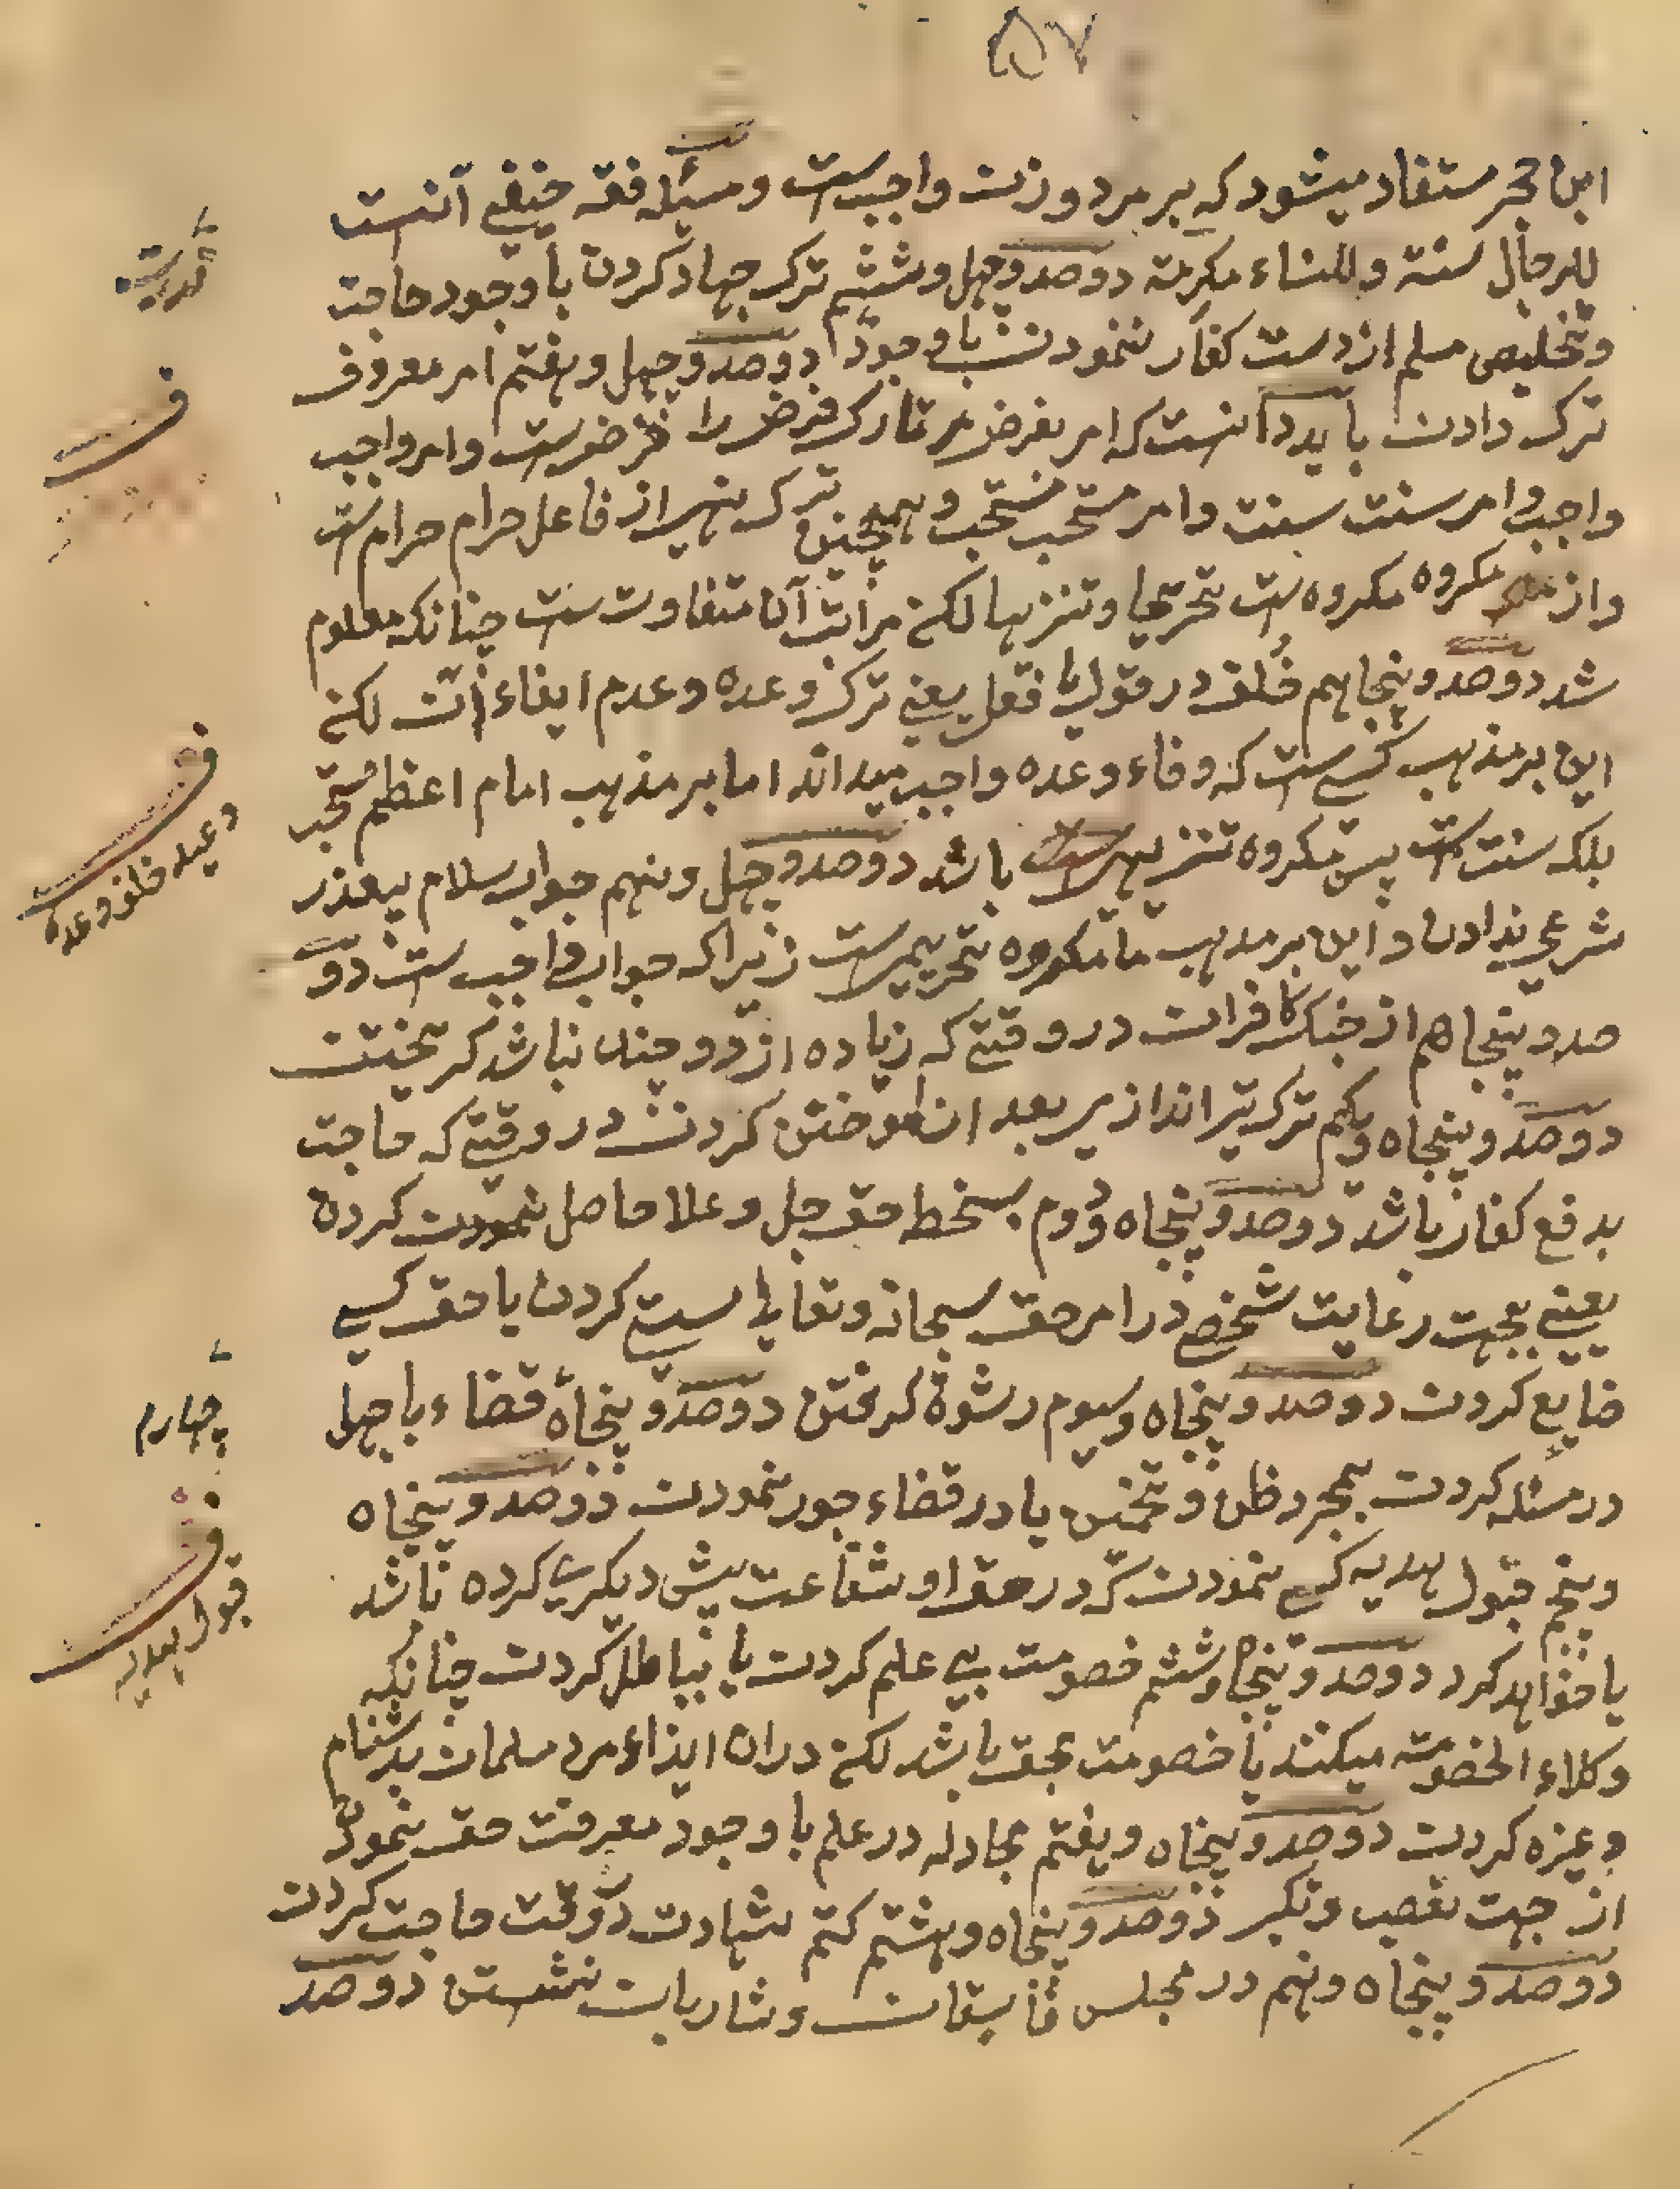 ۵۷
ابن حجر مستفاد میشود که بر مرد و زن واجب ست و مسئله فقه حنفی آنست
للرجال سنة و للنساء مکرمة دوصد و چهل و ششم ترک جهاد کردن با وجود حاجت
و تخلیص مسلم از دست کفار ننمودن با وجود دوصد و چهل و هفتم امر معروف
ترک دادن باید دانست که امر بفرض مر تارک فرض را فرض ست و امر واجب
واجب و امر سنت سنت و امر مستحب مستحب و همچنین ترک نهی از فاعل حرام حرام ست
و از مکروه مکروه ست تحریما و تنزیها لکن مراتب آن متفاوت ست چنانکه معلوم
شد دوصد و پنجاهم خلف در قول یا فعل یعنی ترک وعده و عدم ایفاء آن لکن
این بر مذهب کسی ست که وفاء وعده واجب میداند اما بر مذهب امام اعظم مستحب
بلکه سنت ست پس مکروه تنزیهی باشد دوصد و چهل و نهم جواب سلام بیعذر
شرعی ندادن و این بر مذهب ما مکروه تحریمی ست زیرا که جواب واجب ست دو
صد و پنجاهم از جنگ کافران در وقتی که زیاده از دو چند نباشد گریختن
دوصد و پنجاه و یکم ترک تیر اندازی بعد آموختن کردن در وقتی که حاجت
بدفع کفار باشد دوصد و پنجاه و دوم بسخط حق جل و علا حاصل نمودن کردن
یعنی بجهت رعایت شخصی در امر حق سبحانه و تعالی سستی کردن یا حق کسی
ضایع کردن دوصد و پنجاه و سیوم رشوة گرفتن دوصد و پنجاه قضاء با جهل
در مسئله کردن بمجرد ظن و تخمین یا در قضاء جور نمودن دوصد و پنجاه
و پنجم قبول هدیه کسی نمودن که در حق او شفاعت پیش دیگری کرده باشد
یا خواهد کرد دوصد و پنجاه و ششم خصومت بی علم کردن یا بباطل کردن چنانکه
وکلاء الخصومة میکنند یا خصومت بحق باشد لکن در ان ایذاء مرد مسلمان بدشنام
وغیره کردن دوصد و پنجاه و هفتم مجادله در علم با وجود معرفت حق نمودن
از جهت تعصب و تکبر دوصد و پنجاه و هشتم کتم شهادت در وقت حاجت کردن
دوصد و پنجاه و نهم در مجلس فاسقان و شاربان نشستن دوصد
قدرت
ف
ف
وعید خلف وعده
چهارم
ف
قبول هدیه